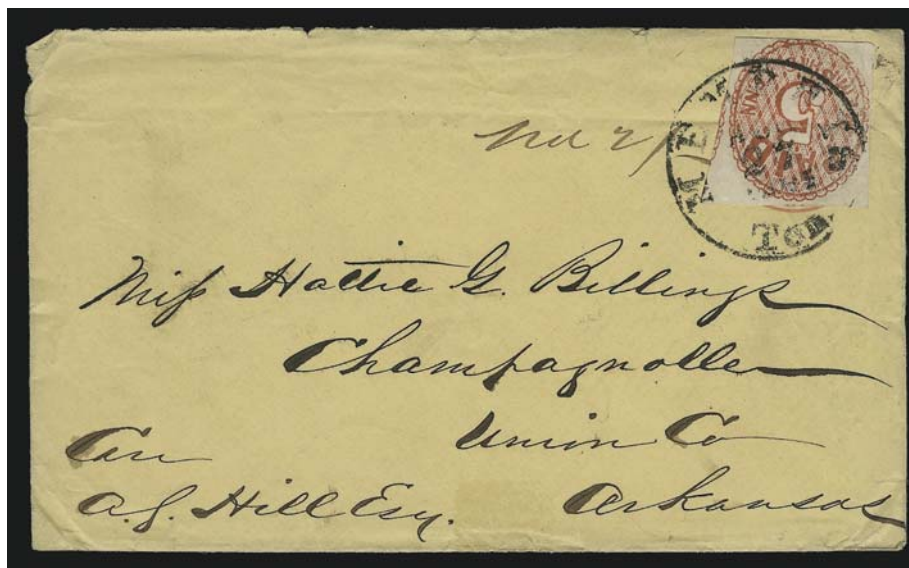 No 2
MEMPHIS
TEN
5
PAID
Miss Hattie G. Billings
Champagnolle
Union Co
Arkansas
Care
A.J. Hill Esq.